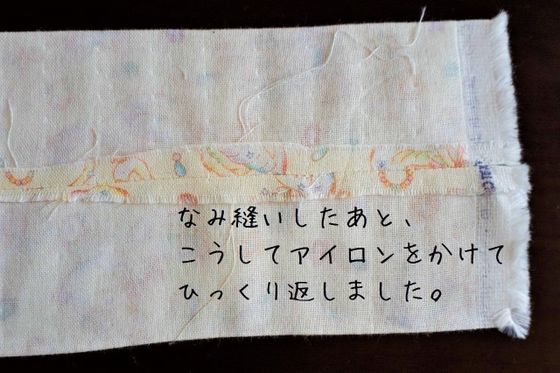 なみ縫いしたあと、
こうしてアイロンをかけて
ひっくり返しました。